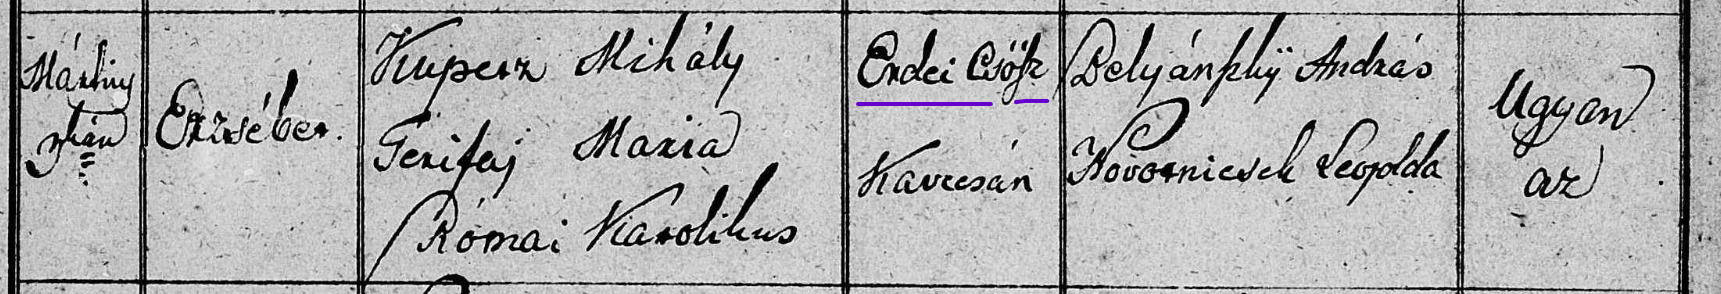 Erzsébet.
Kuperz Mihály
Maria
Római Katolikus
Erdei Csősz
Kavecsán
Belyánszky András
Novotnicsek Leopolda
Ugyan
az